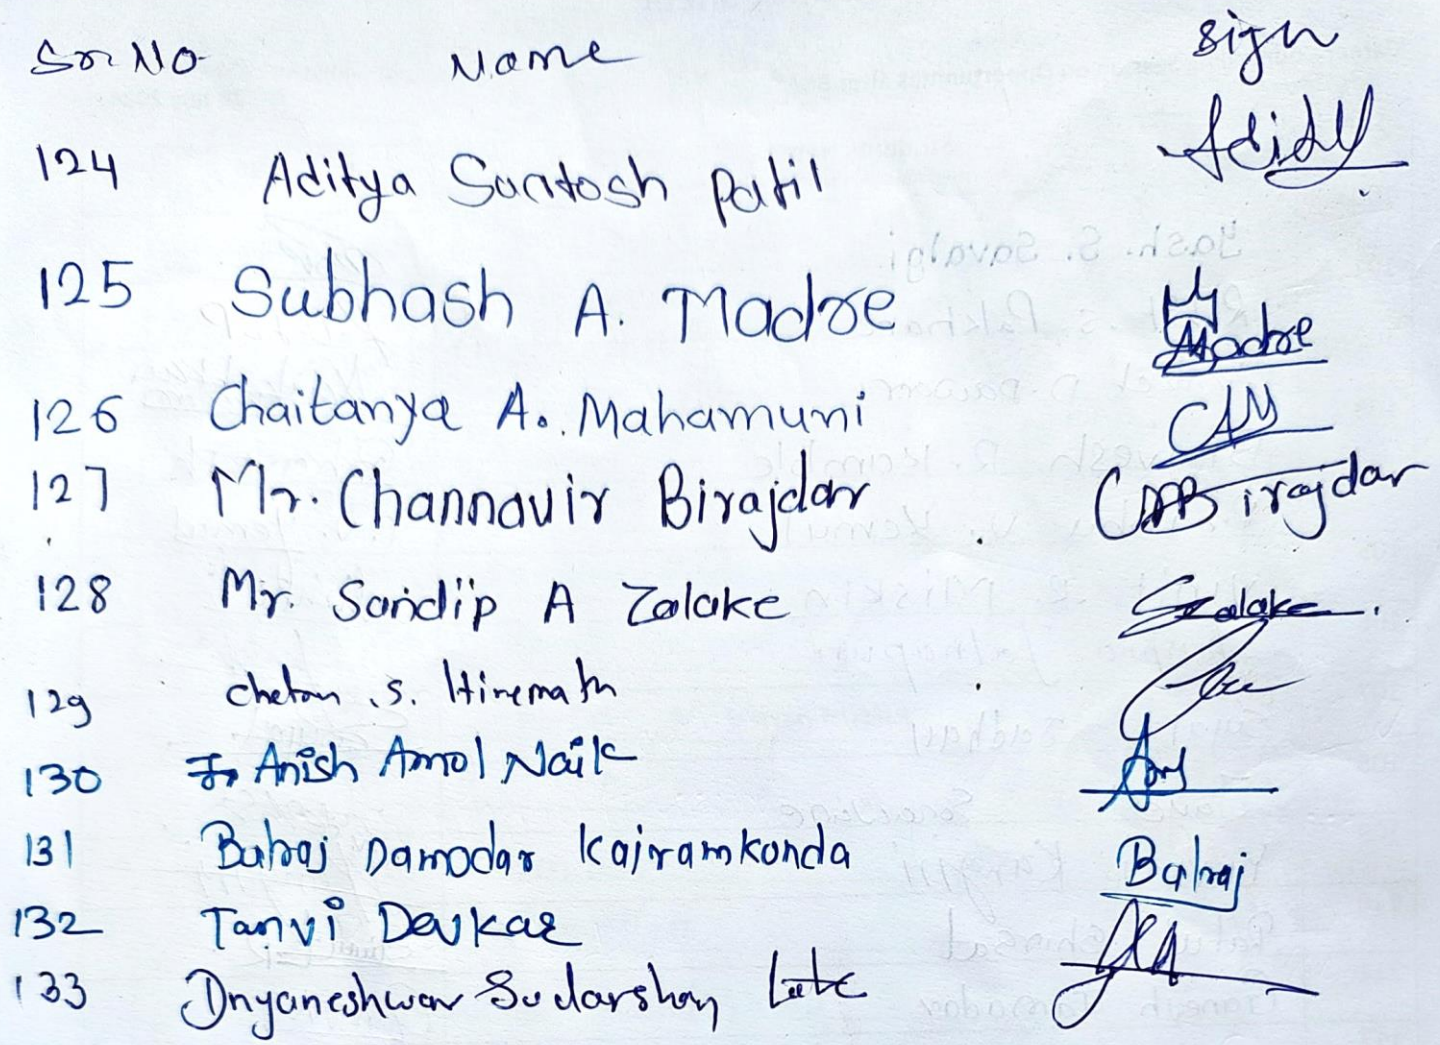 Sr. No Name sign
124 Aditya Santosh Patil
125 Subhash A. Madre Madre
126 Chaitanya A. Mahamuni CAM
127 Mr. Channavir Birajdar Birajdar
128 Mr. Sandip A Zalake Szalake.
129 Chetan .S. Hiremath
130 Anish Amol Naik
131 Balraj Damodar Kajramkonda Balraj
132 Tanvi Devkar
133 Dnyaneshwar Sudarshan